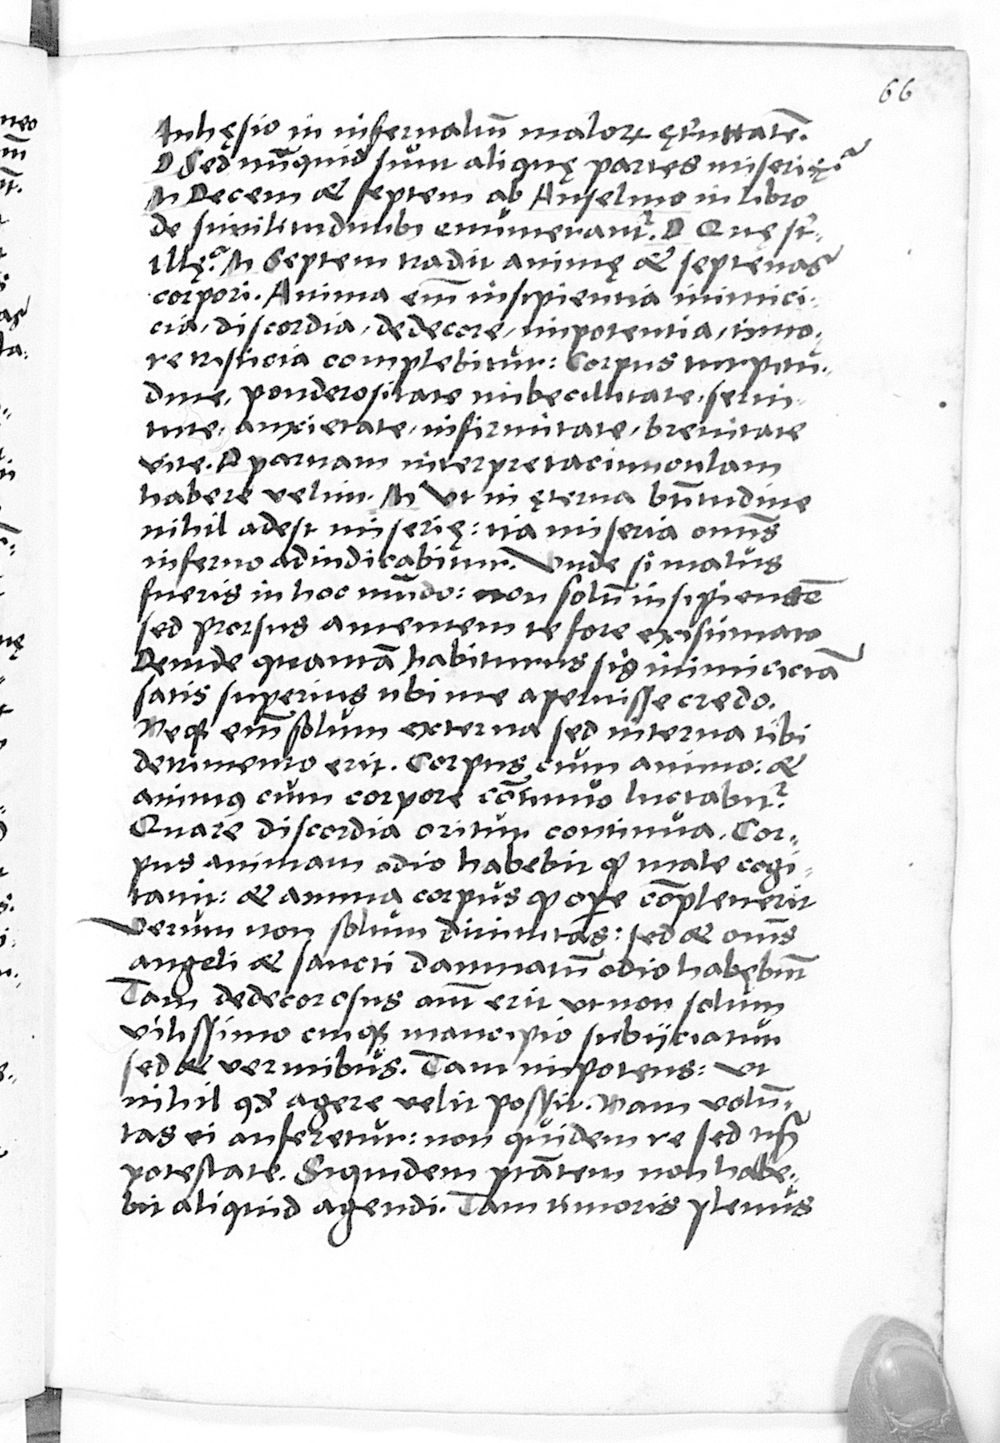 66
Inhęsio in infernaliū malorꝝ ęt'nitatē.
D Sed nūquid sunt aliquę partes miserię?
M Decem & septem ab Anselmo in libro
de similitudinibꝫ enumerant'. D Quę st'
illę? M Septem tradit animę & septenas
corpori. Anima em̄ insipientia inimici-
cia, discordia, dedecore, impotentia, timo-
re tristicia complebitur: Corpus turpitu-
dine, ponderositate imbecillitate, serui-
tute, anxietate, infirmitate, breuitate
vite. D paruam interpretaciunculam
habere velim. M Vt in ęterna btītudine
nihil adest miserię: ita miseria omīs
inferno adiudicabitur. Vnde si malus
fueris in hoc mūdo: non solū insipientē
sed prorsus amentem te fore existimato
Deinde quantā habiturus sis inimiciciā
satis superius tibi me aperuisse credo.
Neqꝫ em̄ solum externa sed interna tibi
detrimento erit. Corpus cum animo: &
animus cum corpore cōtinuo luctabit'.
Quare discordia oritur continua. Cor-
pus animam odio habebit qꝫ male cogi-
tauit: & anima corpus qꝫ ope cōpleuerit
Verum non solum diuinitas: sed & omīs
angeli & sancti damnatū odio habebūt
Tam dedecorosus aūt erit vt non solum
vilissimo cuiqꝫ mancipio subijciatur
sed & vermibus. Tam impotens: vt
nihil qd' agere velit possit. Nam volū-
tas ei auferetur: non quidem re sed
potestate. Siquidem ptātem non habe-
bit aliquid agendi. Tam timoris plenus